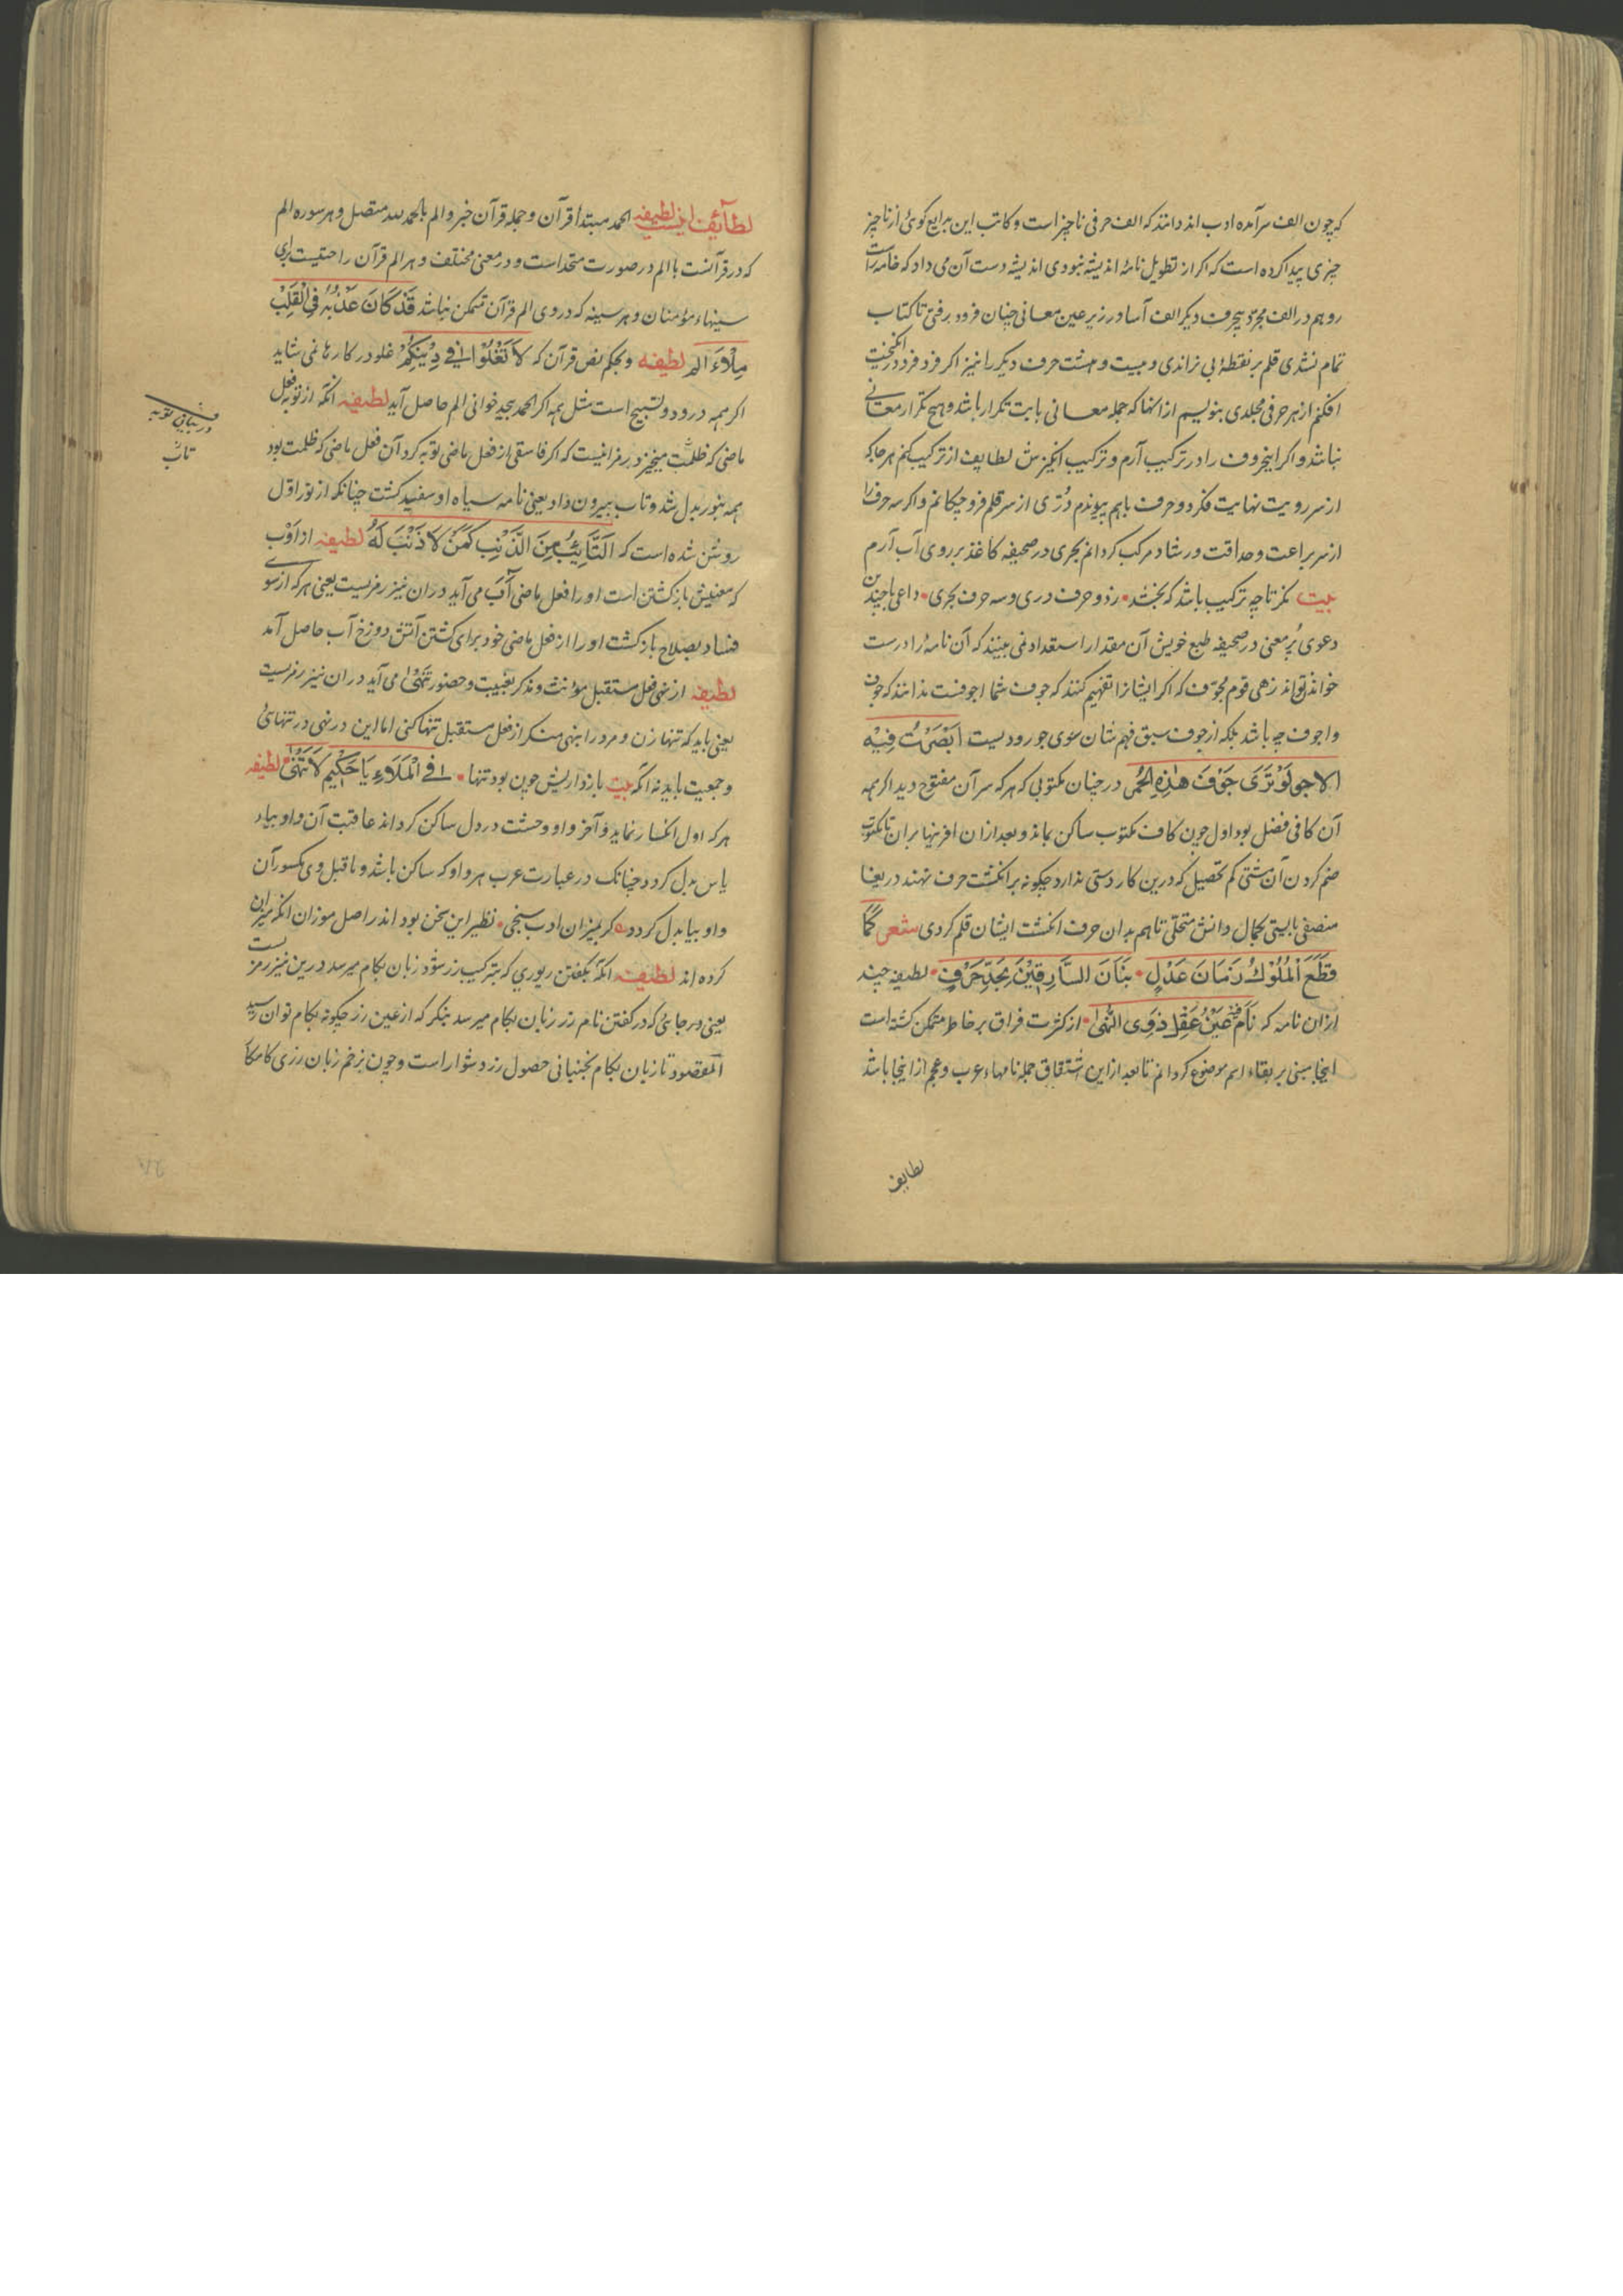 که چون الف سرآمده ادب اند دانند که الف حرفی ناچیز است و کاتب این بدایع کوئ از ناچیز
چیزی پیدا کرده است که اکر از تطویل نامهٔ اندیشه نبودی اندیشه دست آن می داد که خامه راست
رو هم در الف مجرد بیحرف دیکر الف آسا در زیر عین معانی چنان فرود رفتی تا کتاب
تمام نشدی قلم بر نقطهٔ بی نراندی و بیست و هشت حرف دیکر را نیز اکر فرد فرد در انکیخت
افکنم از هر حرفی مجلدی بنویسم از انها که جمله معانی بابت تکرار باشد و هیچ تکرار معانی
نباشد و اکر اینحروف را در ترکیب آرم و ترکیب انکیزش لطایف از ترکیب کنم هر جا که
از سر رویت نهایت فکر دو حرف باهم پیوندم دُرّی از سر قلم فرو چکانم و اکر سه حرف را
از سر براعت وحداقت ورشاد مرکب کردانم بحری در صحیفه کاغذ بر روی آب آرم
بیت نکر تا چه ترکیب باشد که بخشد • زدو حرف دری و سه حرف بحری • داعی با چندین
دعوی پُر معنی در صحیفه طبع خویش آن مقدار استعداد نمی بیند که آن نامه را درست
خواندن تواند زهی قوم مجوّف که اکر ایشانرا تفهیم کنند که جوف شما اجوفست ندانند که جوف
واجوف چه باشد بلکه از جوف سبق فهم شان سوی جو رودیست ابصرت فیه
الاجو لَوْ تَرَی جَوْفَ هٰذِهِ الحُمُر در چنان مکتوبی که هر که سر آن مفتوح دید اکر همه
آن کافی فضل بود اول چون کاف مکتوب ساکن بماند و بعد ازان افرینها بر ان تا مکتوب
ضم کردن آن مشتی کم تحصیل که درین کار دستی ندارد چکونه بر انکشت حرف نهند دریغا
منصفی بایستی بکمال دانش متحلّی تا هم بدان حرف انکشت ایشان قلم کردی شعر کَمَا
قَطَعَ الْمُلُوْكُ زَمَانَ عَدْلٍ • بَنَانَ السَّارِقِیْنَ بِحَدِّ حَرْفٍ • لطیفه چند
ازان نامه که نَامَ عَیْنُ عَقْلِ ذَوِی النُّهَی • از کثرت فراق بر خاطر متمکن کشته است
اینجا مبنی بر بقاء اسم موضوع کردانم تا بعد از این اشتقاق جمله نامهاء عرب و عجم از اینجا باشد
لطایف
لطآئِف اینست لطیفه الحمد مبتداء قرآن و جمله قرآن خبر و الم بالحمد لله متصل و هر سوره الم
که در قرآنست با الم در صورت متحد است و در معنی مختلف و هر الم قرآن را حقیست برای
سینهاء مؤمنان و هر سینه که در وی الم قرآن متمکن نباشد قَدْ كَانَ عَذْبُهُ فِی الْقَلْبِ
مِلْاءَ الم لطیفه و بحکم نص قرآن که لَا تَغْلُوْا فِی دِیْنِكُمْ غلو در کارها نمی شاید
اکر همه درود و تسبیح است مثل همه اکر الحمد بیحد خوانی الم حاصل آید لطیفه انکه از توبه فعل
ماضی که ظلمت میخیزد رمزانیست که اکر فاسقی از فعل ماضی توبه کرد آن فعل ماضی که ظلمت بود
همه بنور بدل شد و تاب بیرون داد یعنی نامه سیاه او سفید کشت چنانکه از نور اوّل
روشن شده است که اَلتَّآئِبُ مِنَ الذَّنْبِ كَمَنْ لَا ذَنْبَ لَهُ لطیفه اداوْب
که معنیش باز کشتن است او را فعل ماضی آبَ می آید دران نیز رمزیست یعنی هر که از سوء
فساد بصلاح باز کشت او را از فعل ماضی خود برای کشتن آتش دوزخ آب حاصل آمد
لطیفه از نهی فعل مستقبل مؤنث و مذکر بغیبت و حضور تَنْهَی می آید دران نیز رمزیست
یعنی باید که تنها زن و مرد را بنهی منکر از فعل مستقبل تنها کنی اما این در نهی در تنهائ
و جمعیت باید نه انکه بیت بازداریش چون بود تنها • فِی الْمَلَاءِ یَا حَکِیْمُ لَا تَنْهَی لطیفه
هر که اول انکسار نماید و آخر واو وحشت در دل ساکن کرداند عاقبت آن واو بیاء
یاس بدل کردد چنانک در عبارت عرب هر واو که ساکن باشد و ما قبل وی مکسور آن
واو بیا بدل کردد کر بمیزان ادب سنجی • نظیر این سخن بود اندر اصل موزان انکه میزان
کرده اند لطیفه انکه بکفتن زیوری که بترکیب زر شود زبان بکام میرسد درین نیز رمزیست
یعنی در جائی که در کفتن نام زر زبان بکام میرسد بنکر که از عین زر چکونه بکام توان رسید
المقصود تا زبان بکام نجنبانی حصول زر دشوار است و چون بزخم زبان زری کامکا
در بیان توبه
تائب